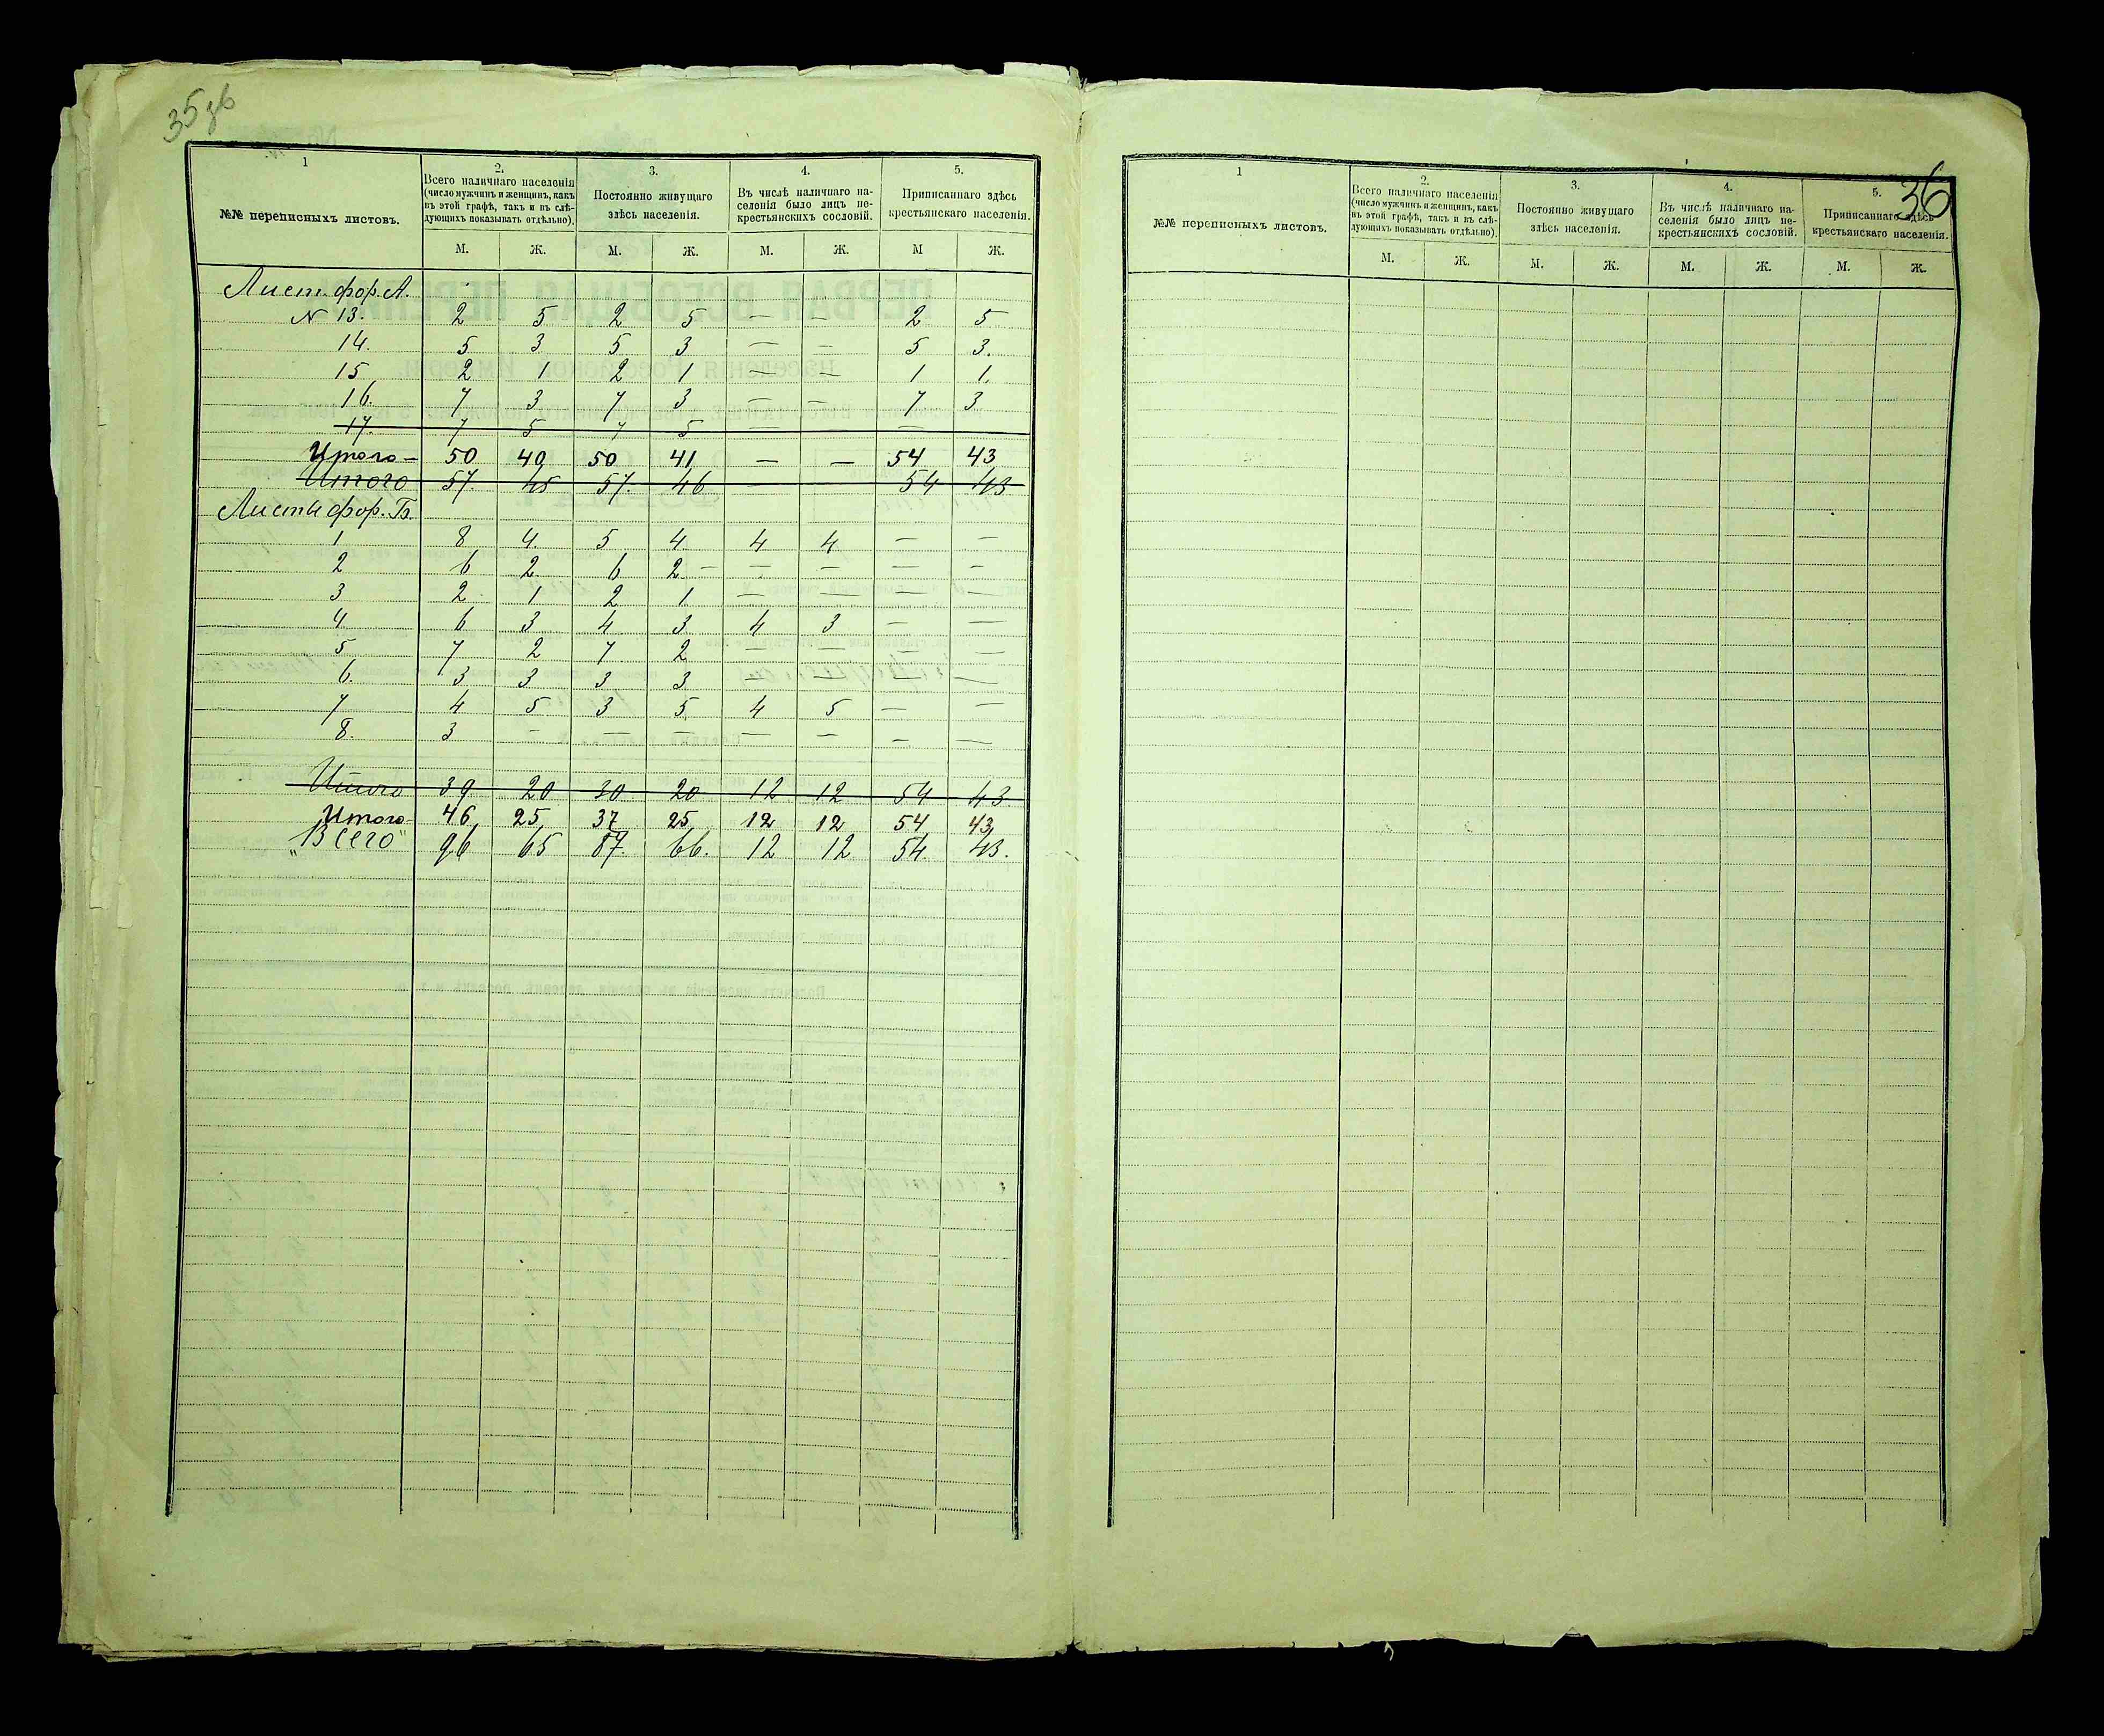 35 об
1 2. 3. 4. 5.
№№ переписныхъ листовъ. Всего наличнаго населенія (число мужчинъ и женщинъ, какъ въ этой графѣ, такъ и въ слѣдующихъ показывать отдѣльно). Постоянно живущаго здѣсь населенія. Въ числѣ наличнаго населенія было лицъ некрестьянскихъ сословій. Приписаннаго здѣсь крестьянскаго населенія.
М. Ж. М. Ж. М. Ж. М Ж.
Лист. фор. А.
N 13. 2 5 2 5 — — 2 5
14. 5 3 5 3 — — 5 3.
15 2 1 2 1 — — 1 1.
16. 7 3 7 3 — — 7 3
17. 7 5 7 5 — —
Итого — 50 40 50 41 — — 54 43
Итого 57. 45 57. 46 — — 54 43
Листы фор. Б.
1 8 4. 5 4. 4 4 — —
2 6 2 6 2 — — — — —
3 2 1 2 1 — — — —
4 6 3 4 3 4 3 — —
5 7 2 7 2 — — — —
6. 3 3 3 3 — — — —
7 4 5 3 5 4 5 — —
8. 3 — — — — — — —
Итого 39 20 30 20 12 12 54 43
Итого 46 25 37 25 12 12 54 43
„Всего" 96 65 87. 66. 12 12 54 43.
36
1 2. 3. 4. 5.
№№ переписныхъ листовъ. Всего наличнаго населенія (число мужчинъ и женщинъ, какъ въ этой графѣ, такъ и въ слѣдующихъ показывать отдѣльно). Постоянно живущаго здѣсь населенія. Въ числѣ наличнаго населенія было лицъ некрестьянскихъ сословій. Приписаннаго здѣсь крестьянскаго населенія.
М. Ж. М. Ж. М. Ж. М. Ж.